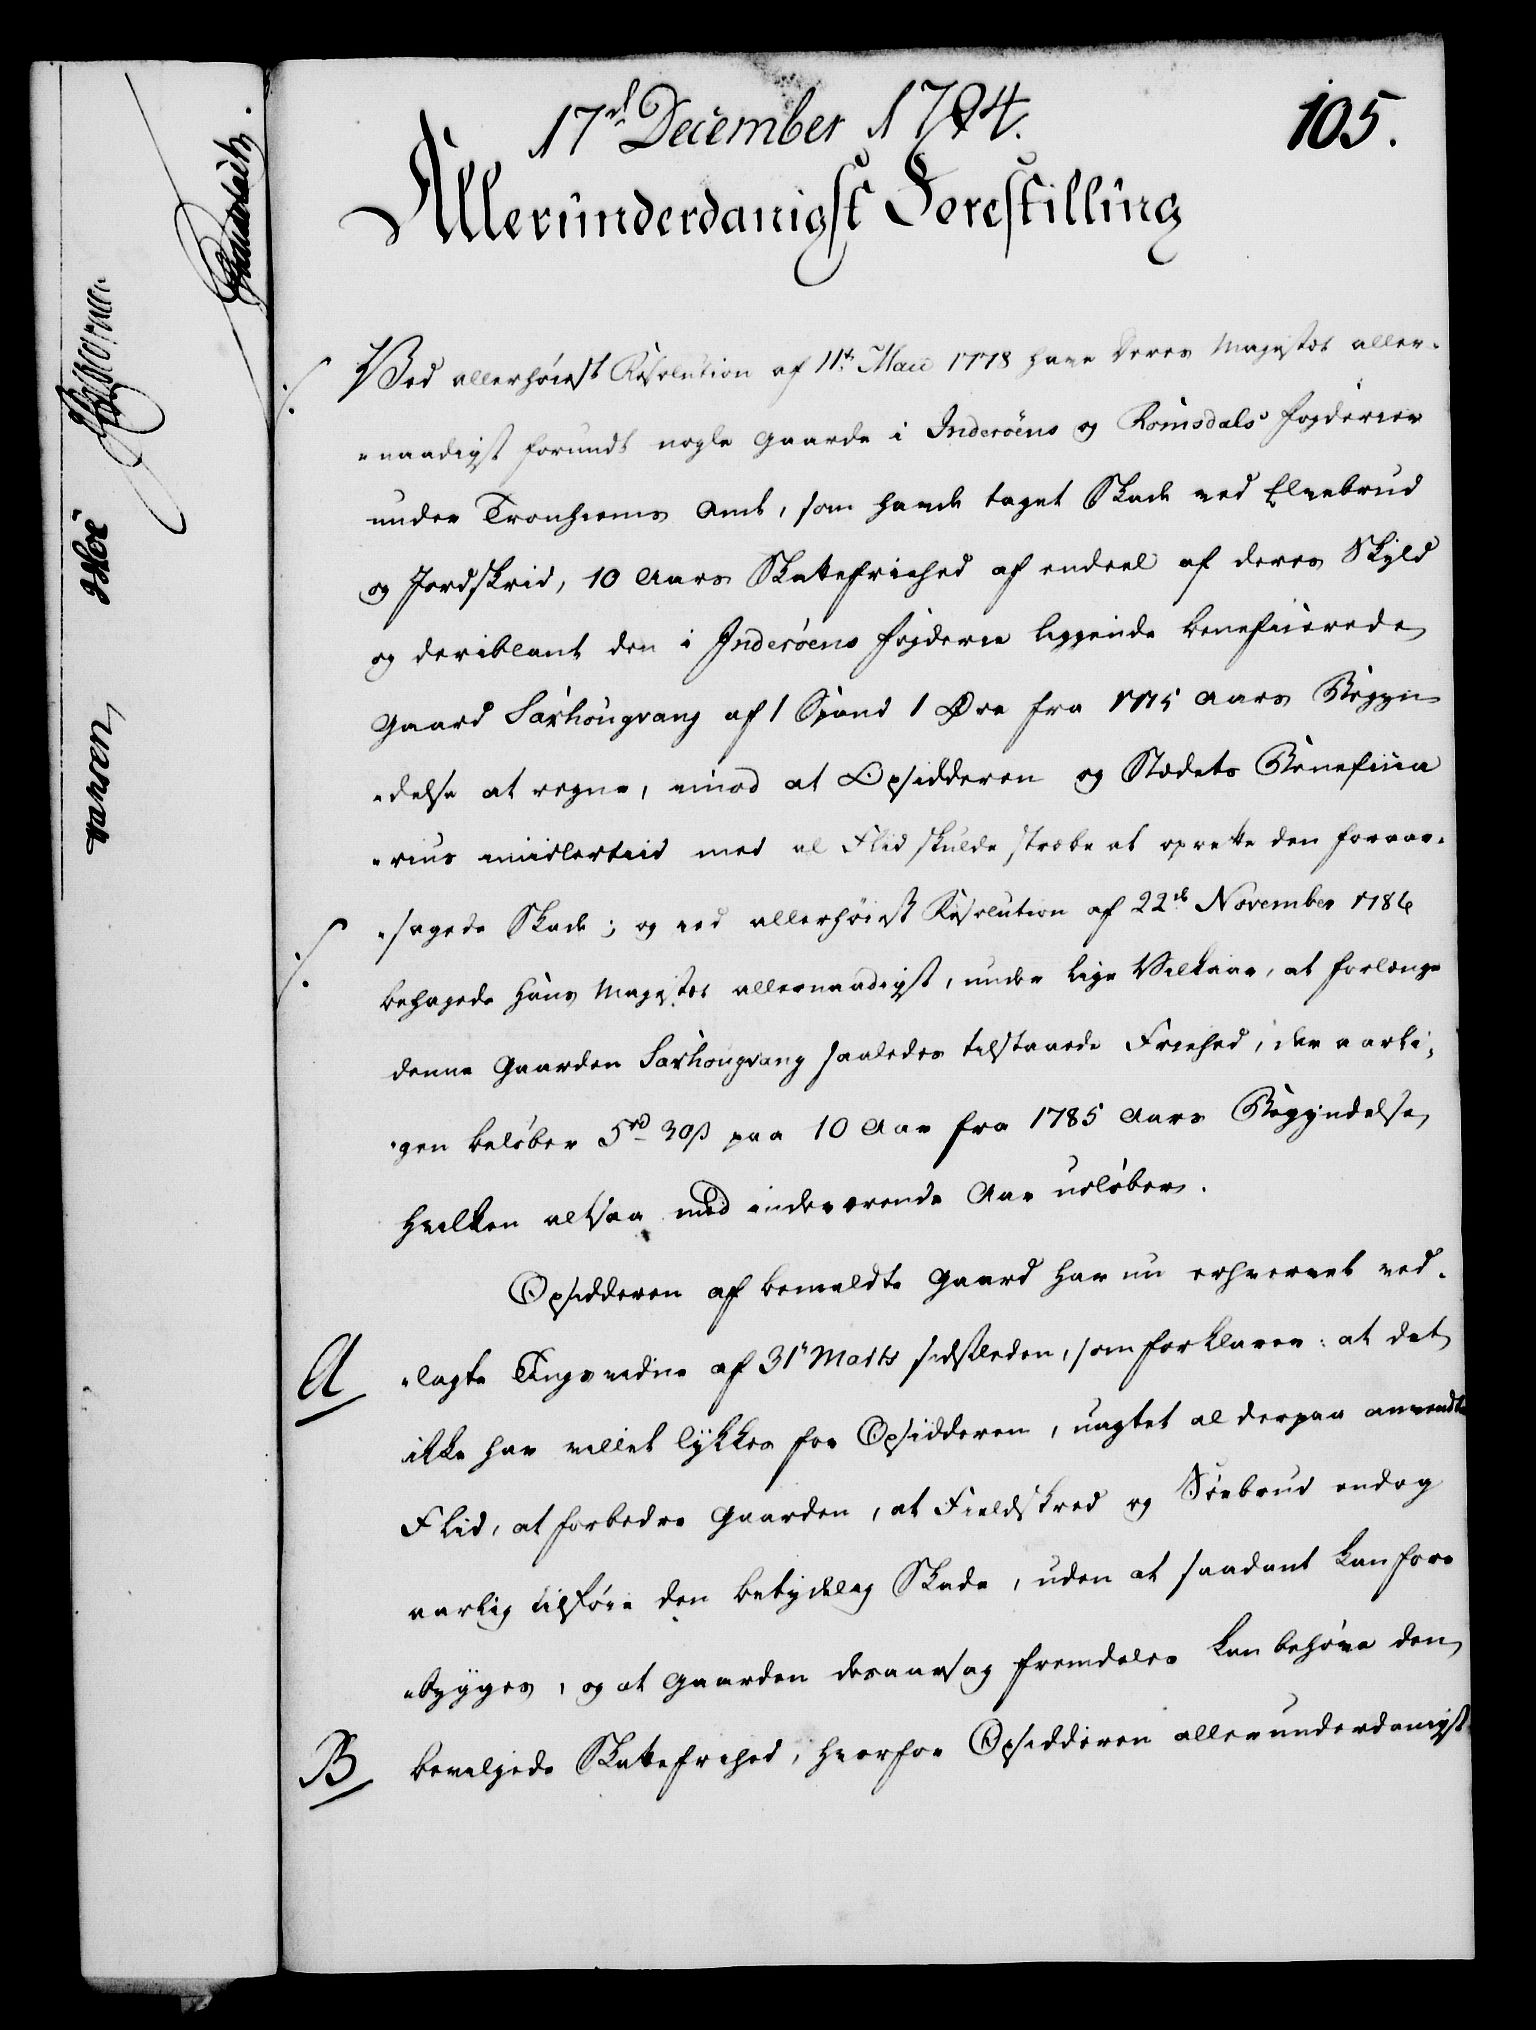 17d December 1794.
105.
Allerunderdanigst Forestilling
Ved allerhøiest Resolution af 11te Maii 1778 have Deres Majestæt aller-
"naadigst forundt nogle Gaarde i Inderöens og Romsdals Fogderier
under Tronhiems Amt, som havde taget Skade ved Elvebrud
og Jordskrid, 10 Aars Skattefriehed af endeel af deres Skyld
og deriblant den i Inderöens Fogderie liggende beneficerede
Gaard Saxhougvang af 1 Spand 1 Øre fra 1775 Aars Begyn-
"delse at regne, imod at Opsidderen og Stedets Beneficia
"rius imidlertiid med al Flid skulde stræbe at oprette den foraar-
"sagede Skade; og ved allerhøiest Resolution af 22de November 1786
behagede Hans Majestæt allernaadigst, under lige Vilkaar, at forlænge
denne Gaarden Saxhougvang saaledes tilstaaede Friehed, der aarli-
"gen beløber 5 rd 30 ß paa 10 Aar fra 1785 Aars Begyndelse,
hvilken altsaa med indeværende Aar udløber.
Opsidderen af bemeldte Gaard har nu erhvervet ved-
A "lagte Tingsvidne af 31te Martz sidstleden, som forklarer: at det
ikke har villet lykkes for Opsidderen, uagtet al derpaa anvendte
Flid, at forbedre Gaarden, at Fieldskred og Söebrud endog
aarlig tilføie den betydelig Skade, uden at saadant kan fore
"bygges, og at Gaarden desaarsag fremdeles kan behøve den
B bevilgede Skattefriehed, hvorfor Opsidderen allerunderdanigst
vansen